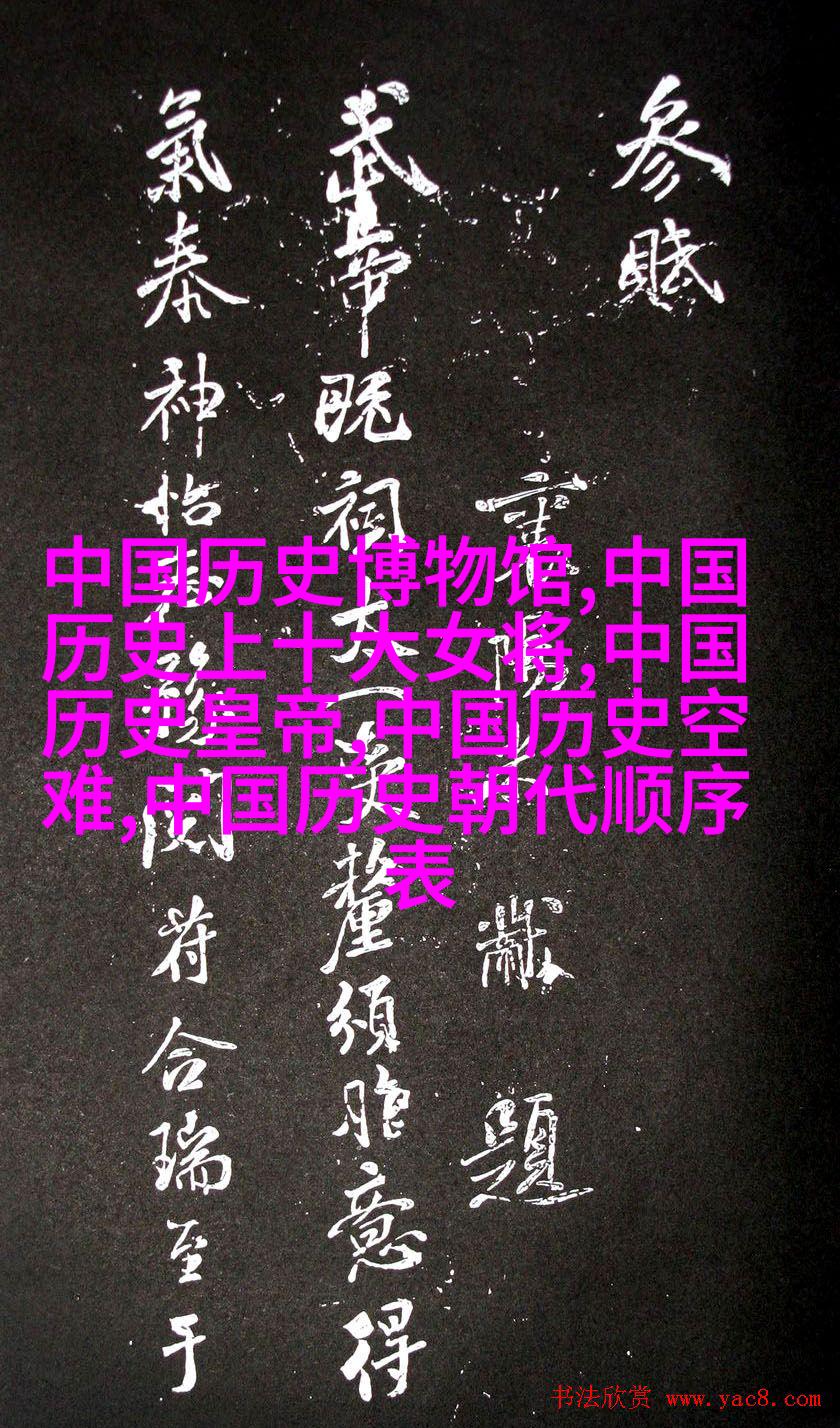 參賦
襄陽米黻題
武帝既祠太一受釐頒胙意得
氣泰神怡 符合瑞至于
中国历史博物馆,中国
历史上十大女将,中国
历史皇帝,中国历史空
难,中国历史朝代顺序
表
书法欣赏 www.yac8.com